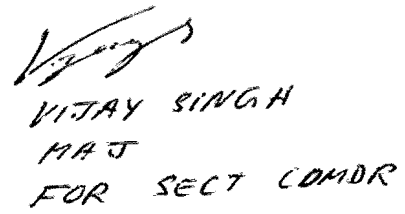 Vijay S
VIJAY SINGH
MAJ
FOR SECT COMDR